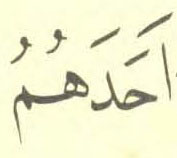 اَحَدَهُمُ